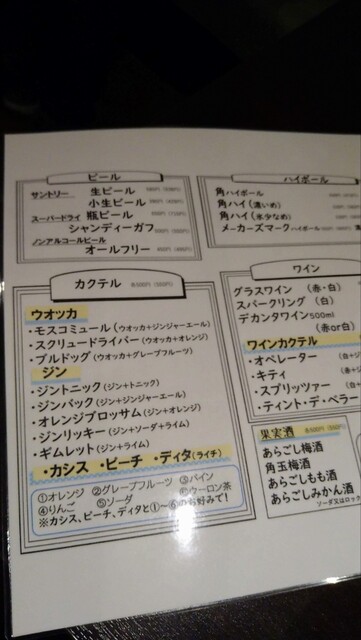 ビール
サントリー 生ビール
小生ビール
スーパードライ 瓶ビール
シャンディーガフ
ノンアルコールビール
オールフリー
ハイボール
角ハイボール
角ハイ(濃いめ)
角ハイ(氷少なめ)
メーカーズマークハイボール
カクテル
ウオッカ
・モスコミュール(ウオッカ+ジンジャーエール)
・スクリュードライバー(ウオッカ+オレンジ)
・ブルドッグ(ウオッカ+グレープフルーツ)
ジン
・ジントニック(ジン+トニック)
・ジンバック(ジン+ジンジャーエール)
・オレンジブロッサム(ジン+オレンジ)
・ジンリッキー(ジン+ソーダ+ライム)
・ギムレット(ジン+ライム)
・カシス ・ピーチ ・ディタ(ライチ)
①オレンジ ②グレープフルーツ ③パイン
④りんご ⑤ソーダ ⑥ウーロン茶
※カシス、ピーチ、ディタと①~⑥のお好みで!
ワイン
グラスワイン (赤・白)
スパークリング (白)
デカンタワイン500ml
(赤or白)
ワインカクテル
・オペレーター
・キティ
・スプリッツァー
・ティント・デ・ベラー
果実酒
あらごし梅酒
角玉梅酒
あらごしもも酒
あらごしみかん酒
ソーダ又はロック